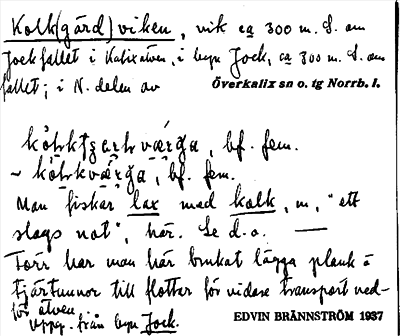 Kolk(gård)viken, vik ca 300 m. S. om
Jockfallet i Kalixälven, i byn Jock, ca 300 m. S. om
fallet; i N. delen av
Överkalix sn o. tg Norrb. l.
bf. fem.
~ bf. fem.
Man fiskar lax med kolk, m, "ett
slags not", här. Se d.o. —
Förr har man här brukat lägga plank å
tjärtunnor till flottar för vidare transport ned-
för älven
uppg. från byn Jock.
EDVIN BRÄNNSTRÖM 1937